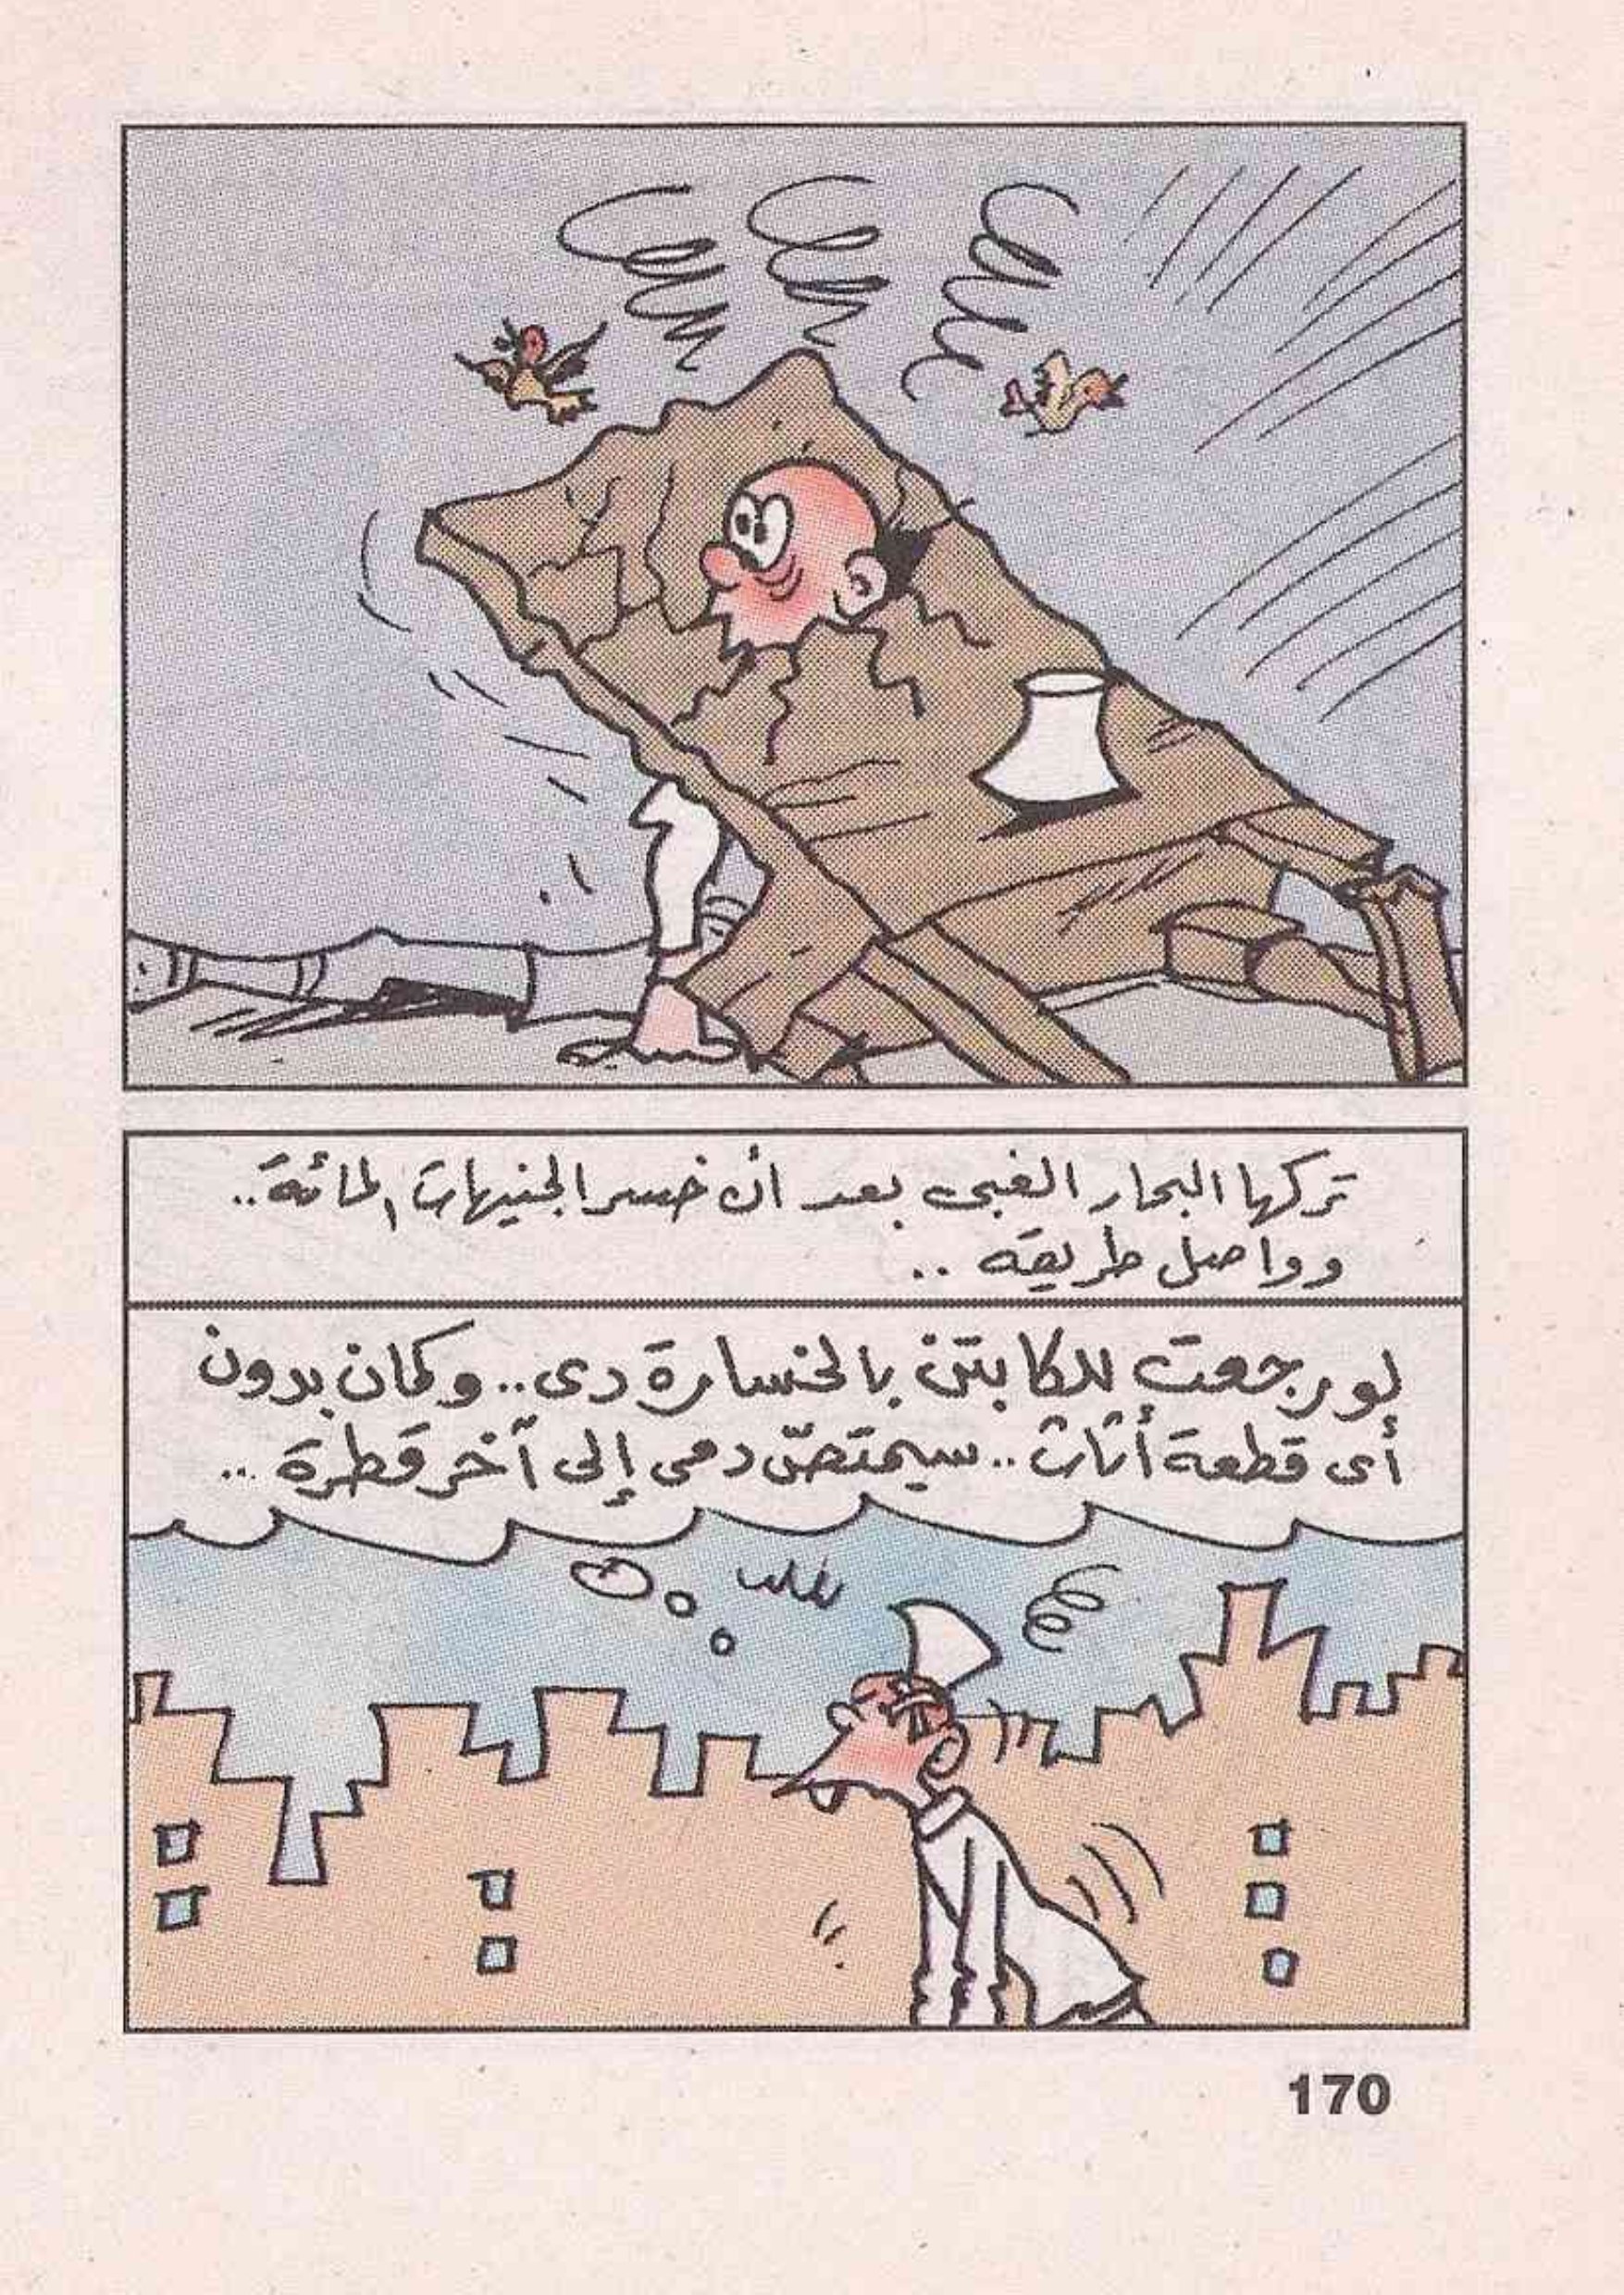 تركها البحار الغبى بعد أن خسر الجنيهات المائة..
وواصل طريقه ..
لو رجعت للكابتن بالخسارة دى.. وكمان بدون
أى قطعة أثاث.. سيمتصّ دمى إلى آخر قطرة ...
170